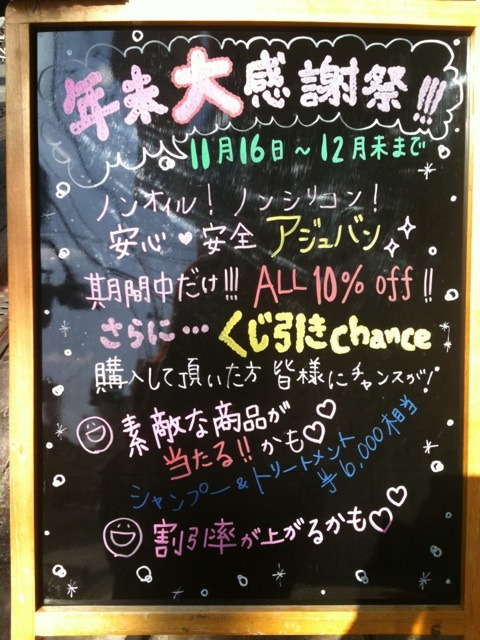 年末大感謝祭!!!
11月16日～12月末まで
ノンオイル! ノンシリコン!
安心♥安全 アジュバン
期間中だけ!!! ALL 10% off!!
さらに… くじ引きchance
購入して頂いた方 皆様にチャンスが!
素敵な商品が
当たる!!かも♡♡
シャンプー&トリートメント
¥6,000相当
割引率が上がるかも♡♡